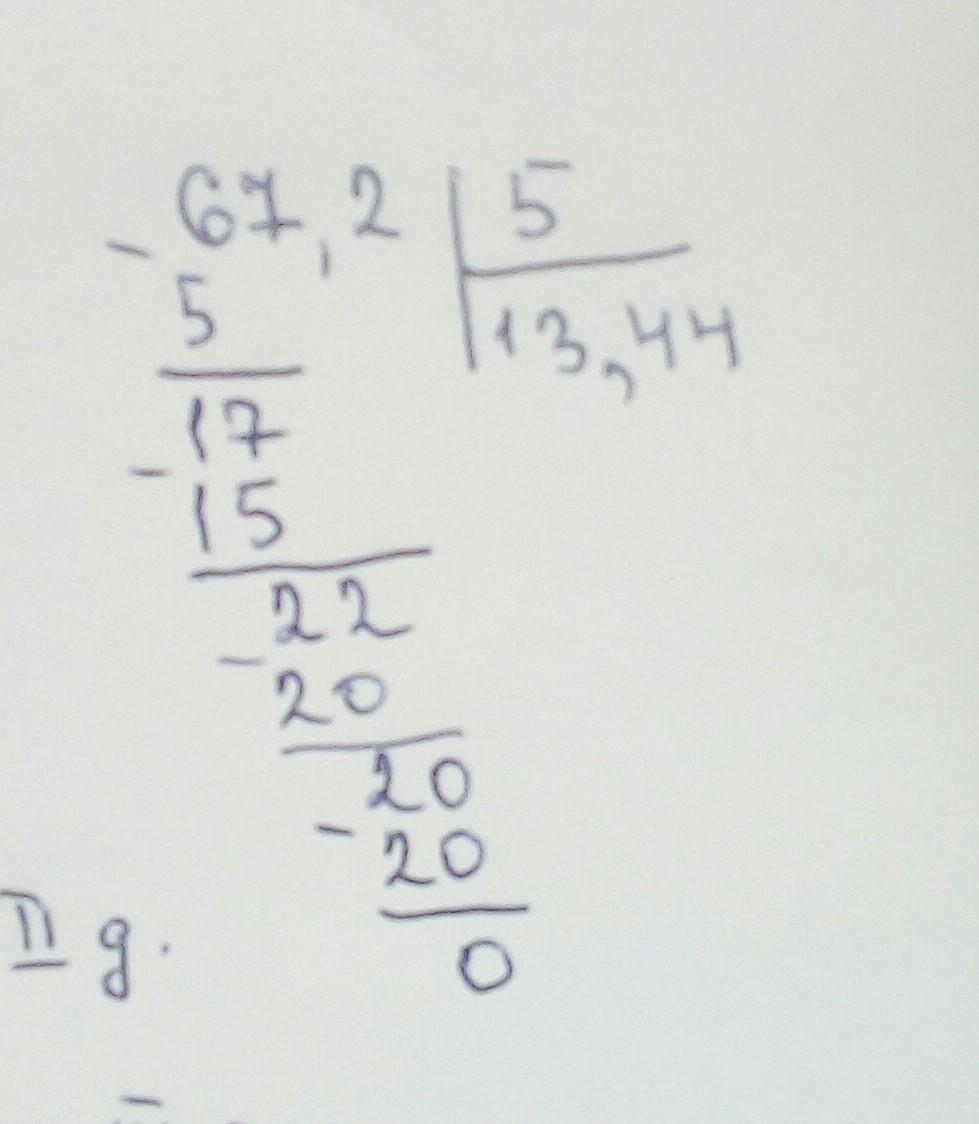 67,2 5
5 13,44
17
15
22
20
20
20
II д. 0